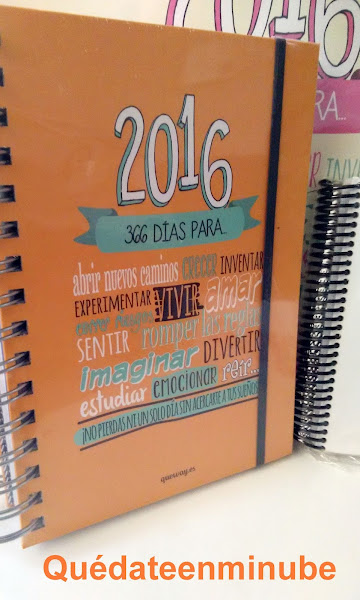 2016
366 DÍAS PARA...
abrir nuevos caminos CRECER INVENTAR
EXPERIMENTAR VIVIR amar
correr riesgos romper las reglas
SENTIR
imaginar DIVERTIR
estudiar emocionar reír...
¡NO PIERDAS NI UN SOLO DÍA SIN ACERCARTE A TUS SUEÑOS!
queway.es
2016
RA...
INVE
Quédateenminube